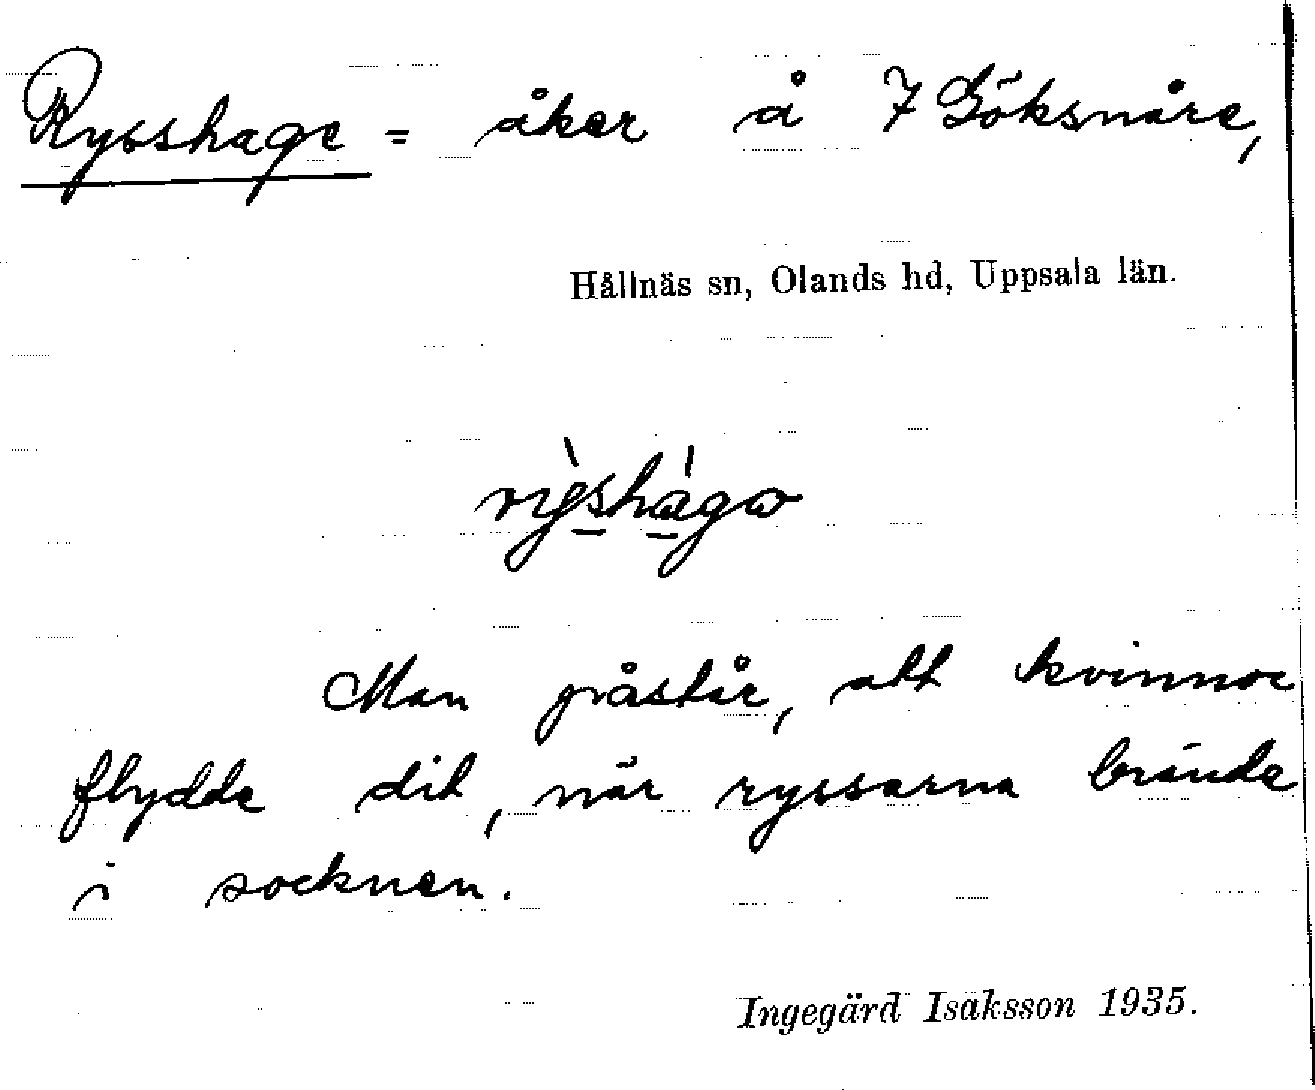 Rysshage = åker å 7 Göksnåre,
Hållnäs sn, Olands hd, Uppsala län.
Man påstår, att kvinnor
flydde dit, när ryssarna brände
i socknen.
Ingegärd Isaksson 1935.